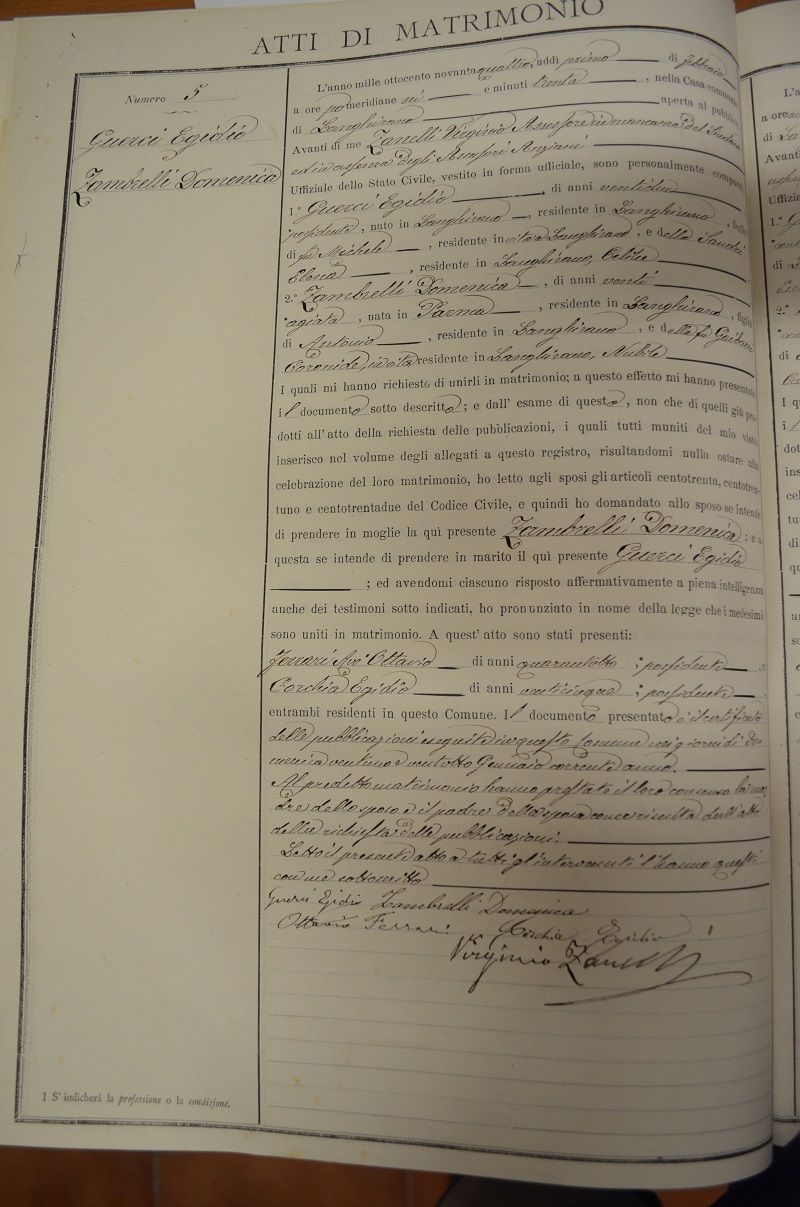 ATTI DI MATRIMONIO
Numero 5
Guerci Egidio
Zambrelli Domenica
L'anno mille ottocento novantaquattro, addì primo di Febbraio
a ore pomeridiane sei e minuti trenta, nella Casa comunale
di Langhirano aperta al pubblico
Avanti di me Zanelli Virginio Assessore in mancanza del Sindaco
ed in assenza degli Assessori Anziani
Uffiziale dello Stato Civile, vestito in forma ufficiale, sono personalmente comparsi
1.° Guerci Egidio, di anni ventidue
possidente, nato in Langhirano, residente in Langhirano, figlio
di fu Michele, residente in vita a Langhirano, e della
Elena, residente in Langhirano, Celibe
2.° Zambrelli Domenica, di anni venti
agiata, nata in Parma, residente in Langhirano, figlia
di Antonio, residente in Langhirano, e della fu
in vita residente in Langhirano, Nubile
I quali mi hanno richiesto di unirli in matrimonio; a questo effetto mi hanno presentato
il documento sotto descritto; e dall'esame di questo, non che di quelli già pro-
dotti all'atto della richiesta delle pubblicazioni, i quali tutti muniti del mio visto
inserisco nel volume degli allegati a questo registro, risultandomi nulla ostare alla
celebrazione del loro matrimonio, ho letto agli sposi gli articoli centotrenta, centotren-
tuno e centotrentadue del Codice Civile, e quindi ho domandato allo sposo se intende
di prendere in moglie la quì presente Zambrelli Domenica; e a
questa se intende di prendere in marito il quì presente Guerci Egidio
; ed avendomi ciascuno risposto affermativamente a piena intelligenza
anche dei testimoni sotto indicati, ho pronunziato in nome della legge che i medesimi
sono uniti in matrimonio. A quest'atto sono stati presenti:
Ferrari Ottavio di anni quarantotto; possidente, e
Corchia Egidio di anni venticinque; possidente,
entrambi residenti in questo Comune. Il documento presentato è il certificato
delle pubblicazioni eseguite in questo Comune nei giorni di Do-
menica ventuno e ventotto Gennaio corrente anno.
Al predetto matrimonio hanno prestato il loro consenso la ma-
dre dello sposo e il padre della sposa come risulta dall'atto
della richiesta delle pubblicazioni.
Letto il presente atto a tutti gl'intervenuti l'hanno questi
con me sottoscritto
Guerci Egidio Zambrelli Domenica
Ottavio Ferrari Corchia Egidio
Virginio Zanelli
1 S'indicherà la professione o la condizione.